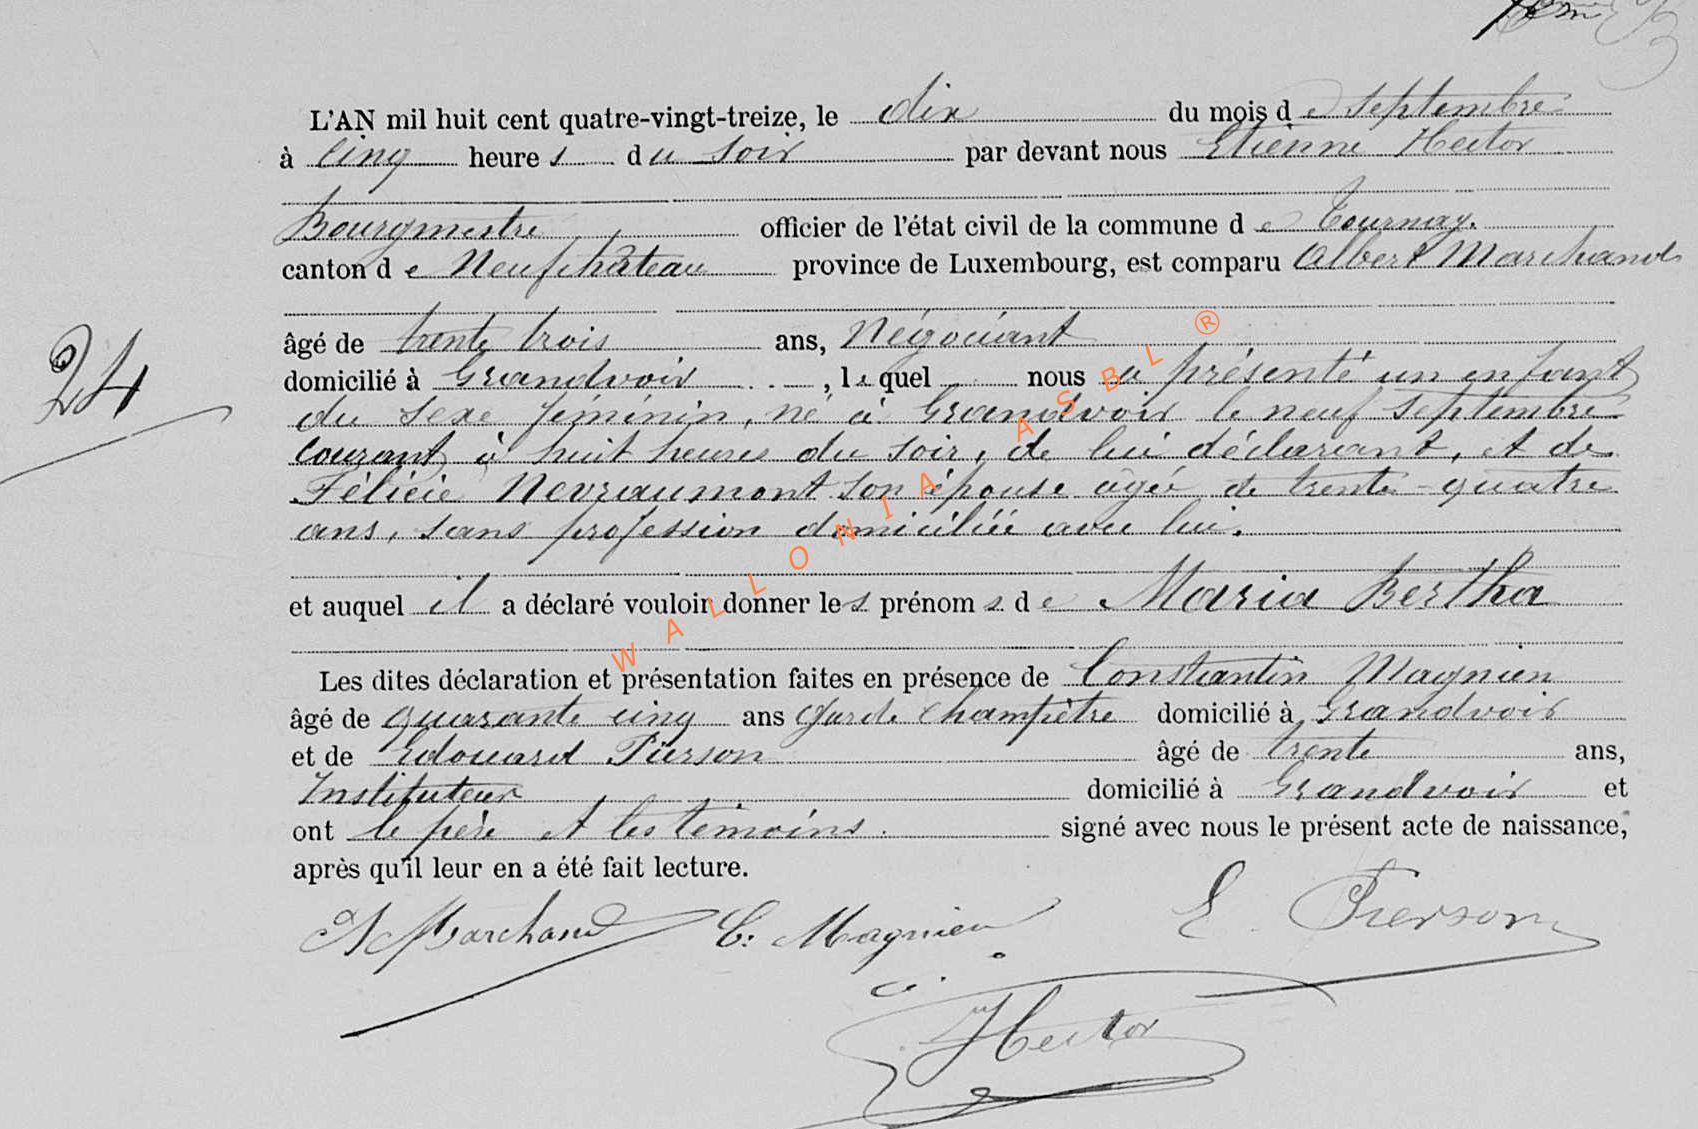 L'AN mil huit cent quatre-vingt-treize, le dix du mois de septembre
à cinq heures du soir par devant nous Etienne Hector
Bourgmestre officier de l'état civil de la commune de Tournay.
canton de Neufchâteau province de Luxembourg, est comparu Albert Marchand
âgé de trente trois ans, Négociant
domicilié à Grandvoir, lequel nous a présenté un enfant
24
du sexe féminin, né à Grandvoir le neuf septembre
courant à huit heures du soir, de lui déclarant, et de
Félicie Nevraumont son épouse agée de trente-quatre
ans, sans profession domiciliée avec lui.
et auquel il a déclaré vouloir donner les prénoms de Maria Bertha
Les dites déclaration et présentation faites en présence de Constantin Magnien
âgé de quarante cinq ans Garde Champêtre domicilié à Grandvoir
et de Edouard Pierson âgé de trente ans,
Instituteur domicilié à Grandvoir et
ont le père et les témoins. signé avec nous le présent acte de naissance,
après qu'il leur en a été fait lecture.
A Marchand C. Magnien E. Pierson
Hector
WALLONIA ASBL ®